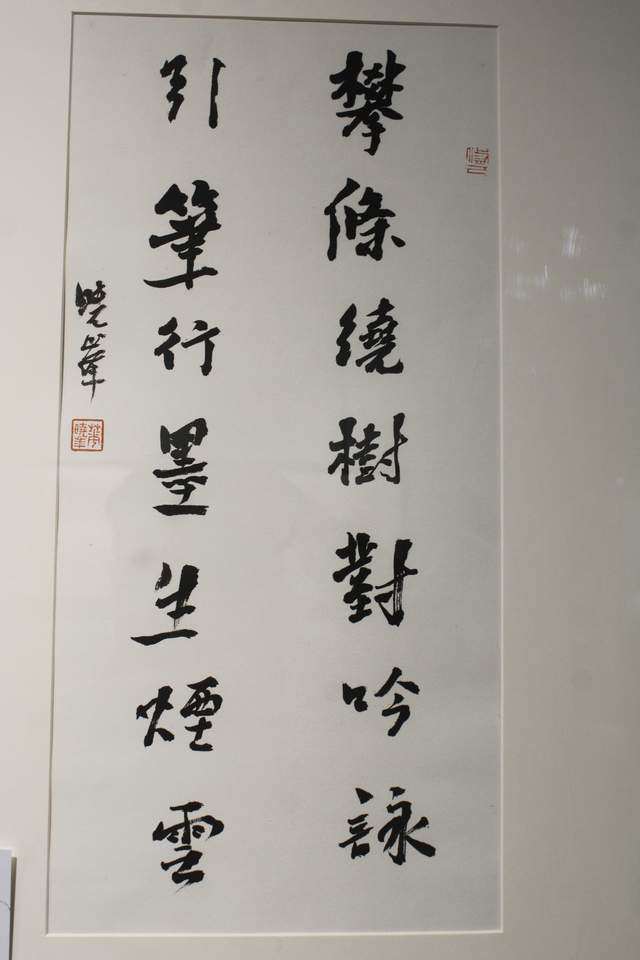 攀條繞樹對吟詠
引筆行墨生煙雲
曉峯